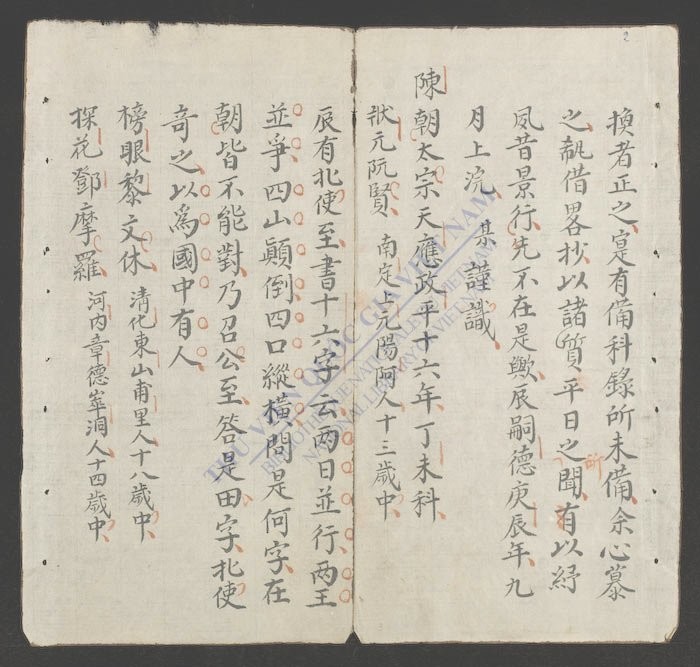 2
換者正之寔有備科錄所未備余心慕
之瓻借畧抄以諸質平日之聞有以紓
所
夙昔景行先不在是歟辰嗣德庚辰年九
月上浣 某謹識
陳朝太宗天應政平十六年丁未科
狀元阮賢 南定上元陽阿人十三歲中
辰有北使至書十六字云两日並行两王
並爭四山顛倒四口縱橫問是何字在
朝皆不能對乃召公至答是田字北使
竒之以爲國中有人
榜眼黎文休 清化東山甫里人十八歲中
探花鄧摩羅 河内章德洞人十四歲中
THƯ VIỆN QUỐC GIA VIỆT NAM
BIBLIOTHEQUE NATIONALE DU VIETNAM
NATIONAL LIBRARY OF VIETNAM